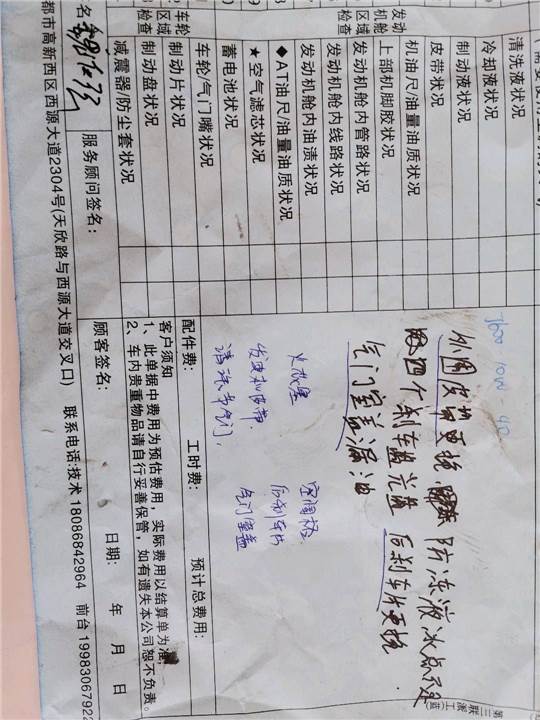 清洗液状况
冷却液状况
制动液状况
皮带状况
机油尺/油量油质状况
发动机舱区域检查
上部机脚胶状况
发动机舱内管路状况
发动机舱内线路状况
发动机舱内油渍状况
◆AT油尺/油量油质状况
★空气滤芯状况
蓄电池状况
车轮区域检查
车轮/气门嘴状况
制动片状况
制动盘状况
减震器/防尘套状况
10W-40
外围皮带更换 防冻液冰点不足
四个刹车盘光盘 后刹车片更换
气门室盖漏油
火花塞 空调格
发动机皮带 后刹车片
清洗节气门, 气门室盖
配件费: 工时费: 预计总费用:
客户须知
1、此单据中费用为预估费用，实际费用以结算单为准，
2、车内贵重物品请自行妥善保管，如有遗失本公司恕不负责。
名 服务顾问签名: 顾客签名: 日期: 年 月 日
都市高新西区西源大道2304号(天欣路与西源大道交叉口) 联系电话:技术 18086842964 前台 1998306792